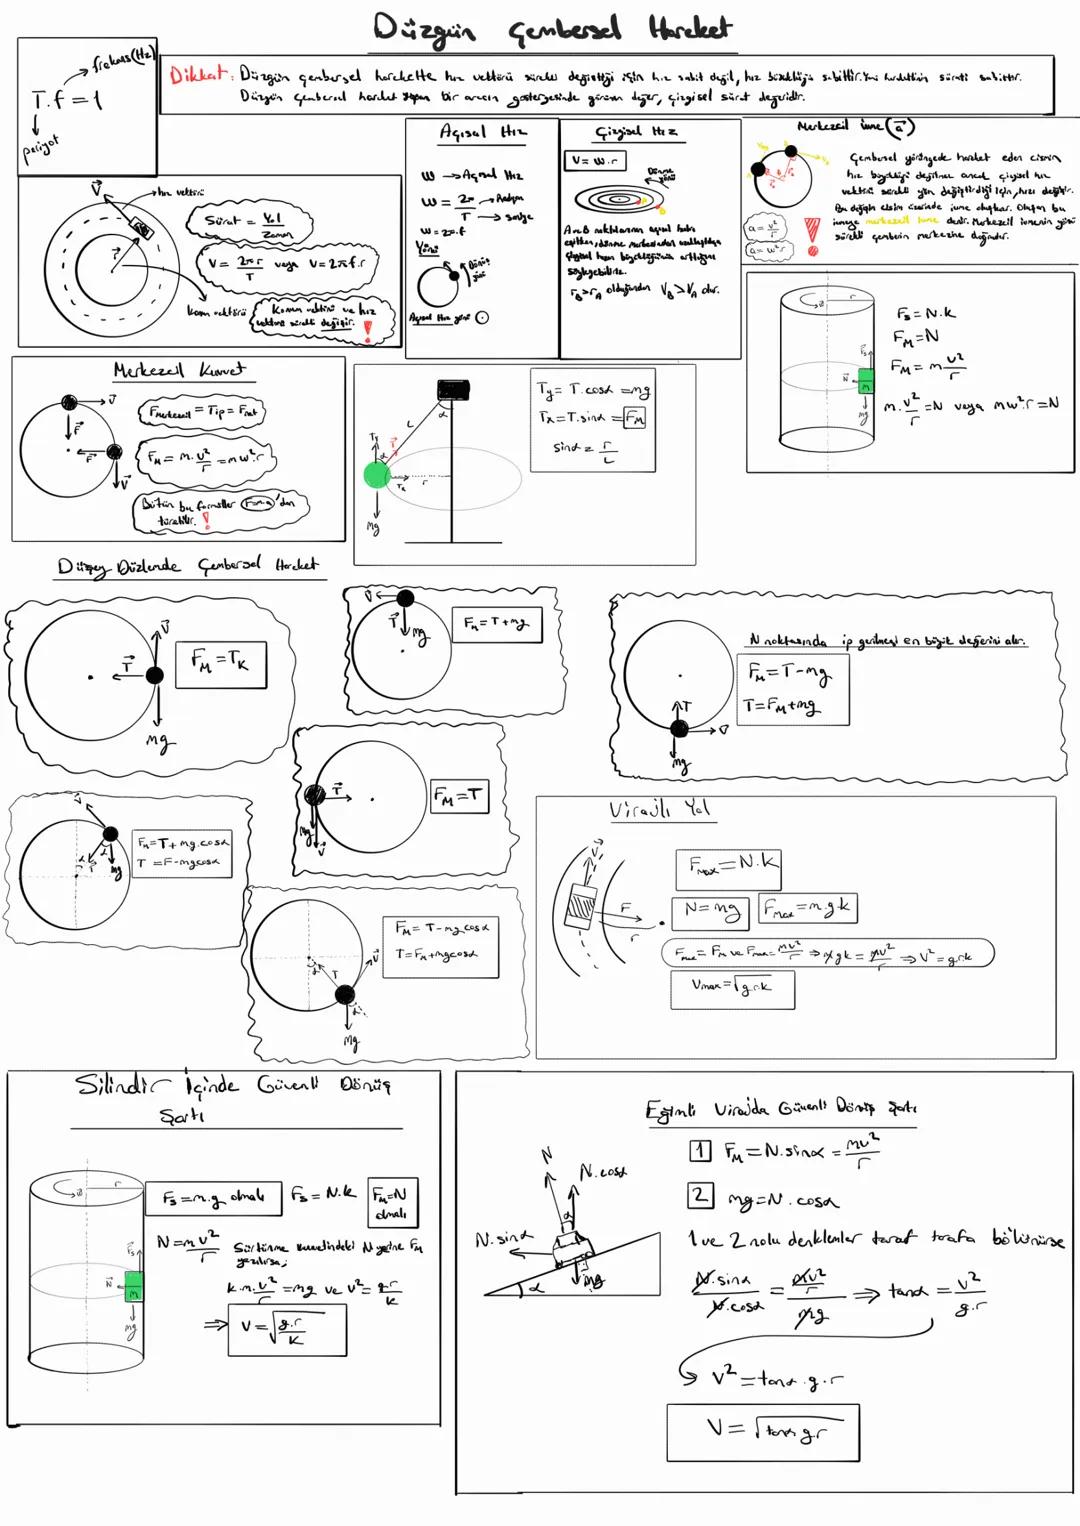 Düzgün Çembersel Hareket
frekans (Hz)
T.f = 1
periyot
Dikkat: Düzgün çembersel harekette hız vektörü sürekli değiştiği için hız sabit değil, hız büyüklüğü sabittir. Yani hareketlinin sürati sabittir.
Düzgün çembersel hareket yapan bir aracın göstergesinde görünen değer, çizgisel sürat değeridir.
V
hız vektörü
r
konum vektörü
Sürat = Yol / Zaman
V = 2πr / T veya V = 2πf.r
Konum vektörü ve hız
vektörü sürekli değişir. !
Açısal Hız
ω → Açısal Hız
ω = 2π / T → Radyan → saniye
ω = 2π.f
Yörünge
Dönüş
yönü
Açısal Hız yönü ⊙
Çizgisel Hız
V = ω.r
Dönme
yönü
A ve B noktalarının açısal hızı
eşitken, dönme merkezinden uzaklaştıkça
çizgisel hızın büyüklüğünün arttığını
söyleyebiliriz.
r_B > r_A olduğundan V_B > V_A olur.
Merkezcil ivme (a)
Çembersel yörüngede hareket eden cismin
hız büyüklüğü değişmez ancak çizgisel hız
vektörü sürekli yön değiştirdiği için, hızı değişir.
Bu değişim cisim üzerinde ivme oluşturur. Oluşan bu
ivmeye merkezcil ivme denir. Merkezcil ivmenin yönü
sürekli çemberin merkezine doğrudur.
a = v² / r
a = ω².r
!
Merkezcil Kuvvet
V
F
F
V
F_merkezcil = T_ip = F_net
F_M = m.v² / r = mω².r
Bütün bu formüller F=m.a 'dan
türetilir. !
α
L
T_y
T
α
T_x
r
mg
T_y = T.cosα = mg
T_x = T.sinα = F_M
sinα = r / L
ω
r
F_s
N
M
mg
F_s = N.k
F_M = N
F_M = m v² / r
m.v² / r = N veya mω².r = N
Düşey Düzlemde Çembersel Hareket
V
T
mg
F_M = T_K
V
T
mg
F_M = T + mg
N noktasında ip gerilmesi en büyük değerini alır.
F_M = T - mg
T = F_M + mg
T
V
mg
T
mg
V
F_M = T
V
α
α
T
mg
F_M = T + mg.cosα
T = F - mgcosα
α
T
V
α
mg
F_M = T - mg cosα
T = F_M + mgcosα
Virajlı Yol
V
F
r
F_max = N.k
N = mg
F_max = m.g.k
F_max = F_M ve F_max = mv² / r ⇒ mgk = mv² / r ⇒ V² = g.r.k
V_max = √g.r.k
Silindir İçinde Güvenli Dönüş
Şartı
ω
r
F_s
N
M
mg
F_s = m.g olmalı
F_s = N.k
F_M = N
olmalı
N = m v² / r
Sürtünme kuvvetindeki N yerine F_M
yazılırsa;
k.m.v² / r = mg ve v² = g.r / k
⇒ V = √g.r / k
Eğimli Virajda Güvenli Dönüş Şartı
N
N.cosα
α
N.sinα
mg
α
1 F_M = N.sinα = mv² / r
2 mg = N.cosα
1 ve 2 nolu denklemler taraf tarafa bölünürse
N.sinα / N.cosα = mv² / r / mg ⇒ tanα = v² / g.r
V² = tanα.g.r
V = √tanα g.r